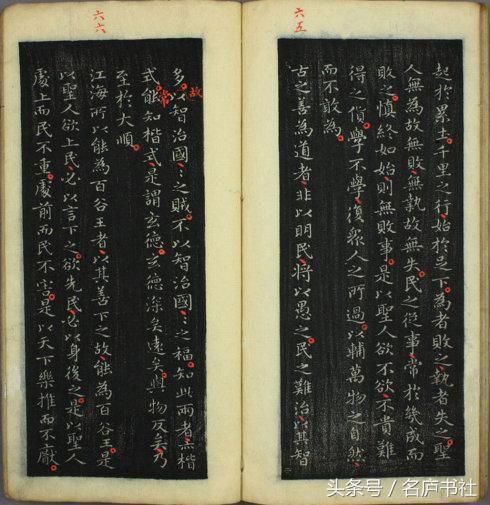 六五
起於累土千里之行始於足下為者敗之執者失之聖
人無為故無敗無執故無失民之從事常於幾成而
敗之慎終如始則無敗事是以聖人欲不欲不貴難
得之貨學不學復眾人之所過以輔萬物之自然
而不敢為
古之善為道者非以明民將以愚之民之難治以其智
六六
多以智治國〻之賊不以智治國〻之福知此兩者亦楷
故
式能知楷式是謂玄德玄德深矣遠矣與物反矣乃
常
至於大順
江海所以能為百谷王者以其善下之故能為百谷王是
以聖人欲上民必以言下之欲先民必以身後之是以聖人
處上而民不重處前而民不害是以天下樂推而不厭
头条号/名庐书社